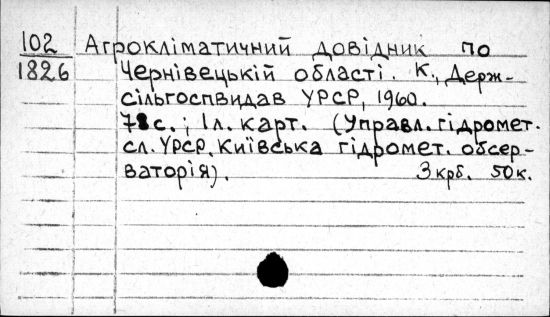 102 Агрокліматичний довідник по
1826 Чернівецькій області. К., Держ-
сільгоспвидав УРСР, 1960.
78с.; 1л. карт. (Управл. гідромет.
сл. УРСР. Київська гідромет. обсер-
ваторія). 3 крб. 50к.